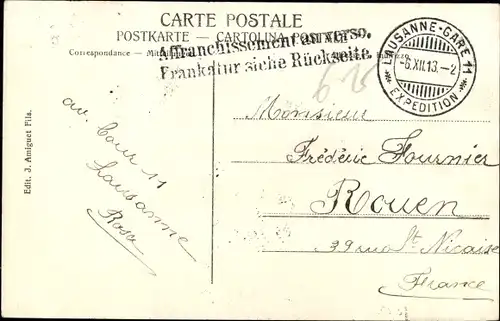 CARTE POSTALE
POSTKARTE — CARTOLINA POSTALE
Correspondance
Affranchissement au verso.
Frankatur siehe Rückseite.
LAUSANNE-GARE 11
-6.XII.13.-2
EXPEDITION
Edit. J. Amiguet Fils.
av. Cour 11
Lausanne
Rosa
Monsieur
Frédéric Fournier
Rouen
39 rue St Nicaise
France